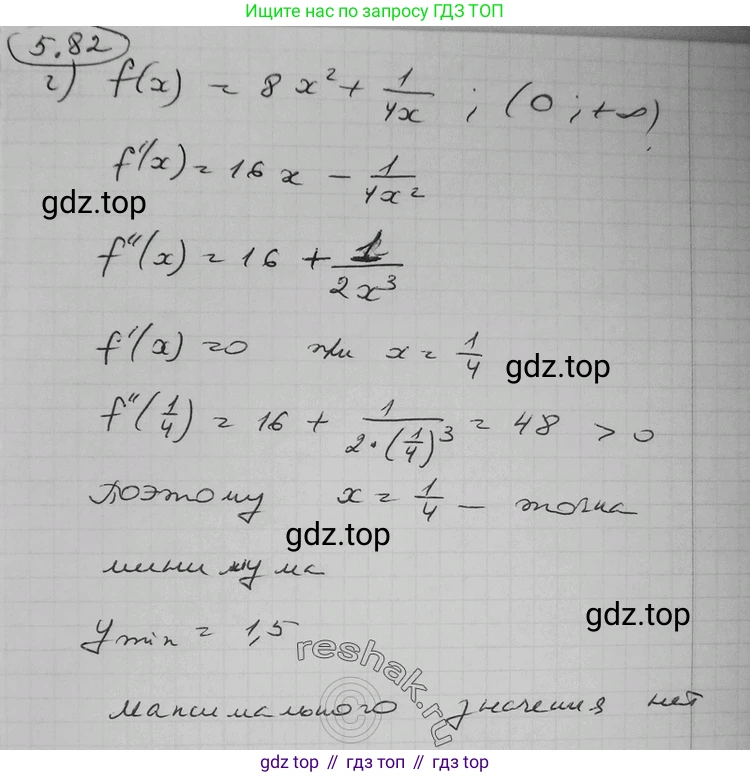 Ищите нас по запросу ГДЗ ТОП
5.82
г) f(x) = 8x² + 1/4x ; (0 ; +∞)
f'(x) = 16x − 1/4x²
gdz.top
f''(x) = 16 + 1/2x³
f'(x) = 0 при x = 1/4
gdz.top
f''(1/4) = 16 + 1/2·(1/4)³ = 48 > 0
Поэтому x = 1/4 — точка
gdz.top
минимума
gdz.top
y min = 1,5
reshak.ru
©
максимального значения нет
gdz.top // гдз.топ // гдз.top